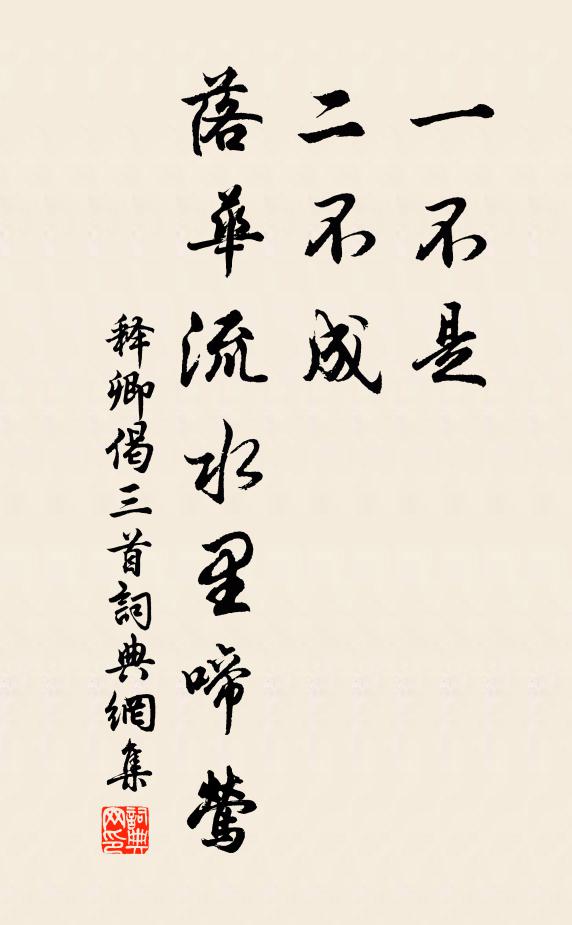 一不是
二不成
落華流水里啼鶯
释卿偈三首詞典網集
詞典
网印